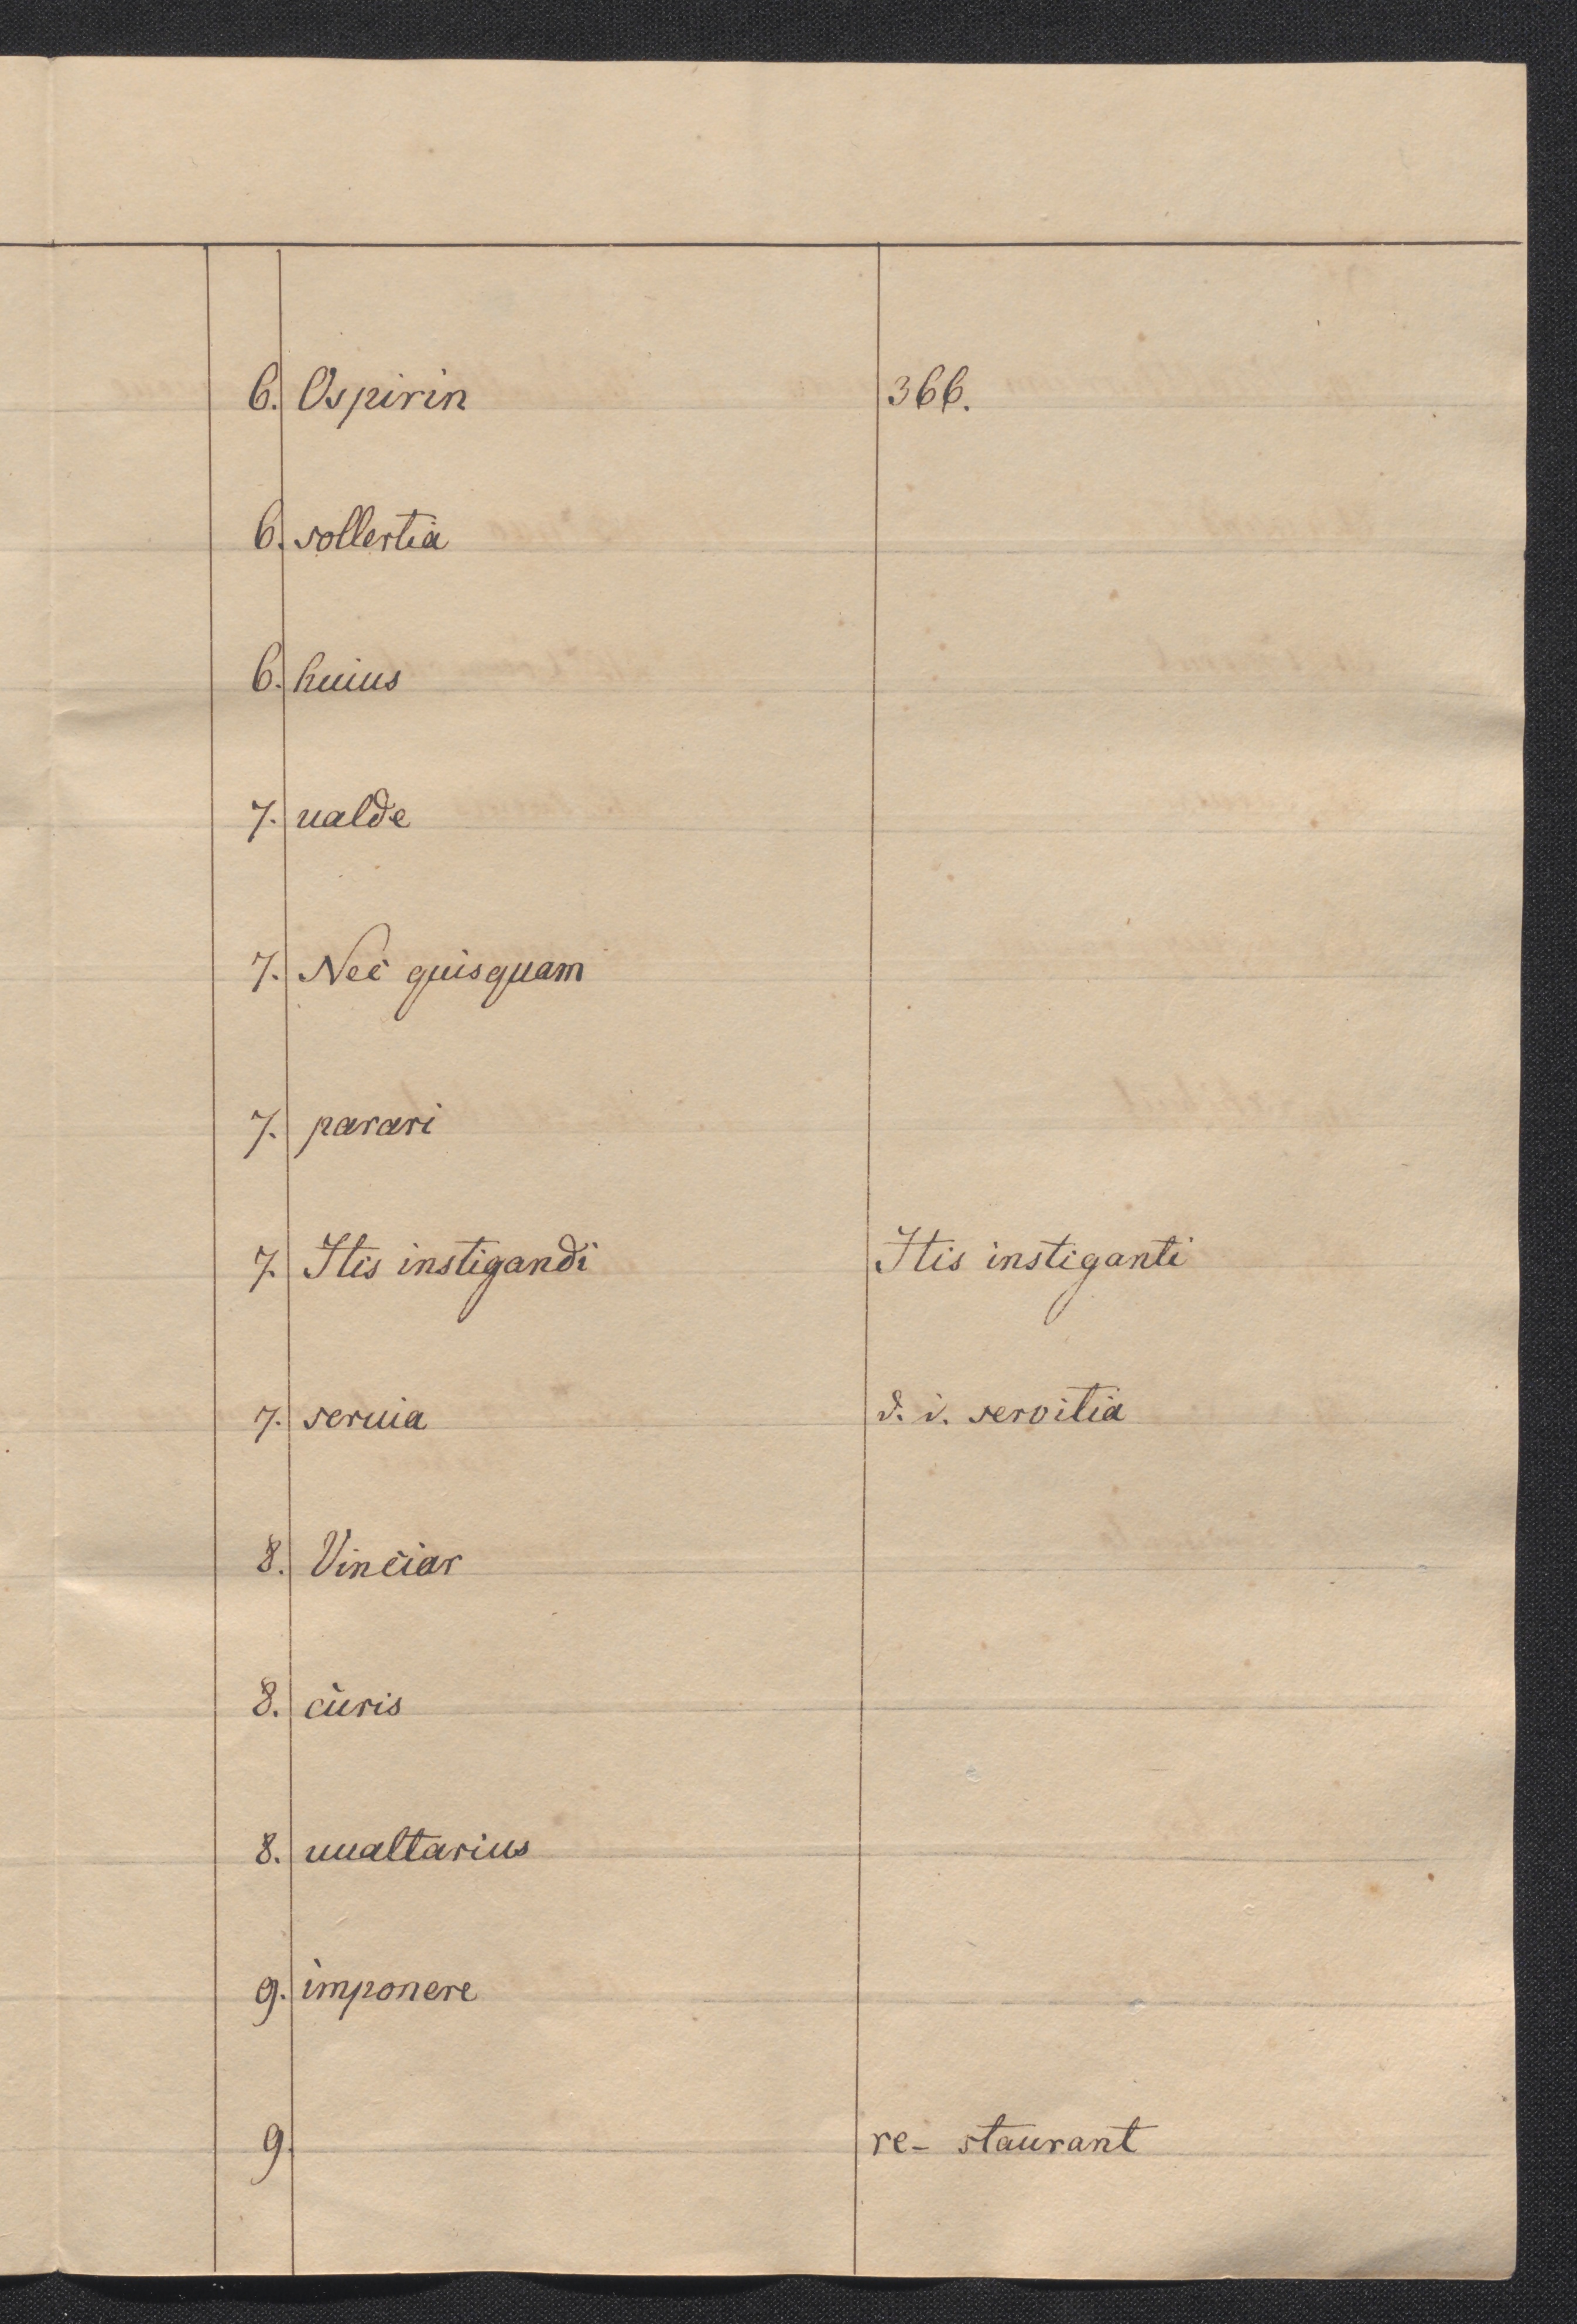 6. Ospirin 366.
6. sollertia
6. huius
7. ualde
7. Nec quisquam
7. parari
7. Itis instigandi Itis instiganti
7. seruia d. i. servitia
8. Vinciar
8. curis
8. uualtarius
9. imponere
9. re- staurant